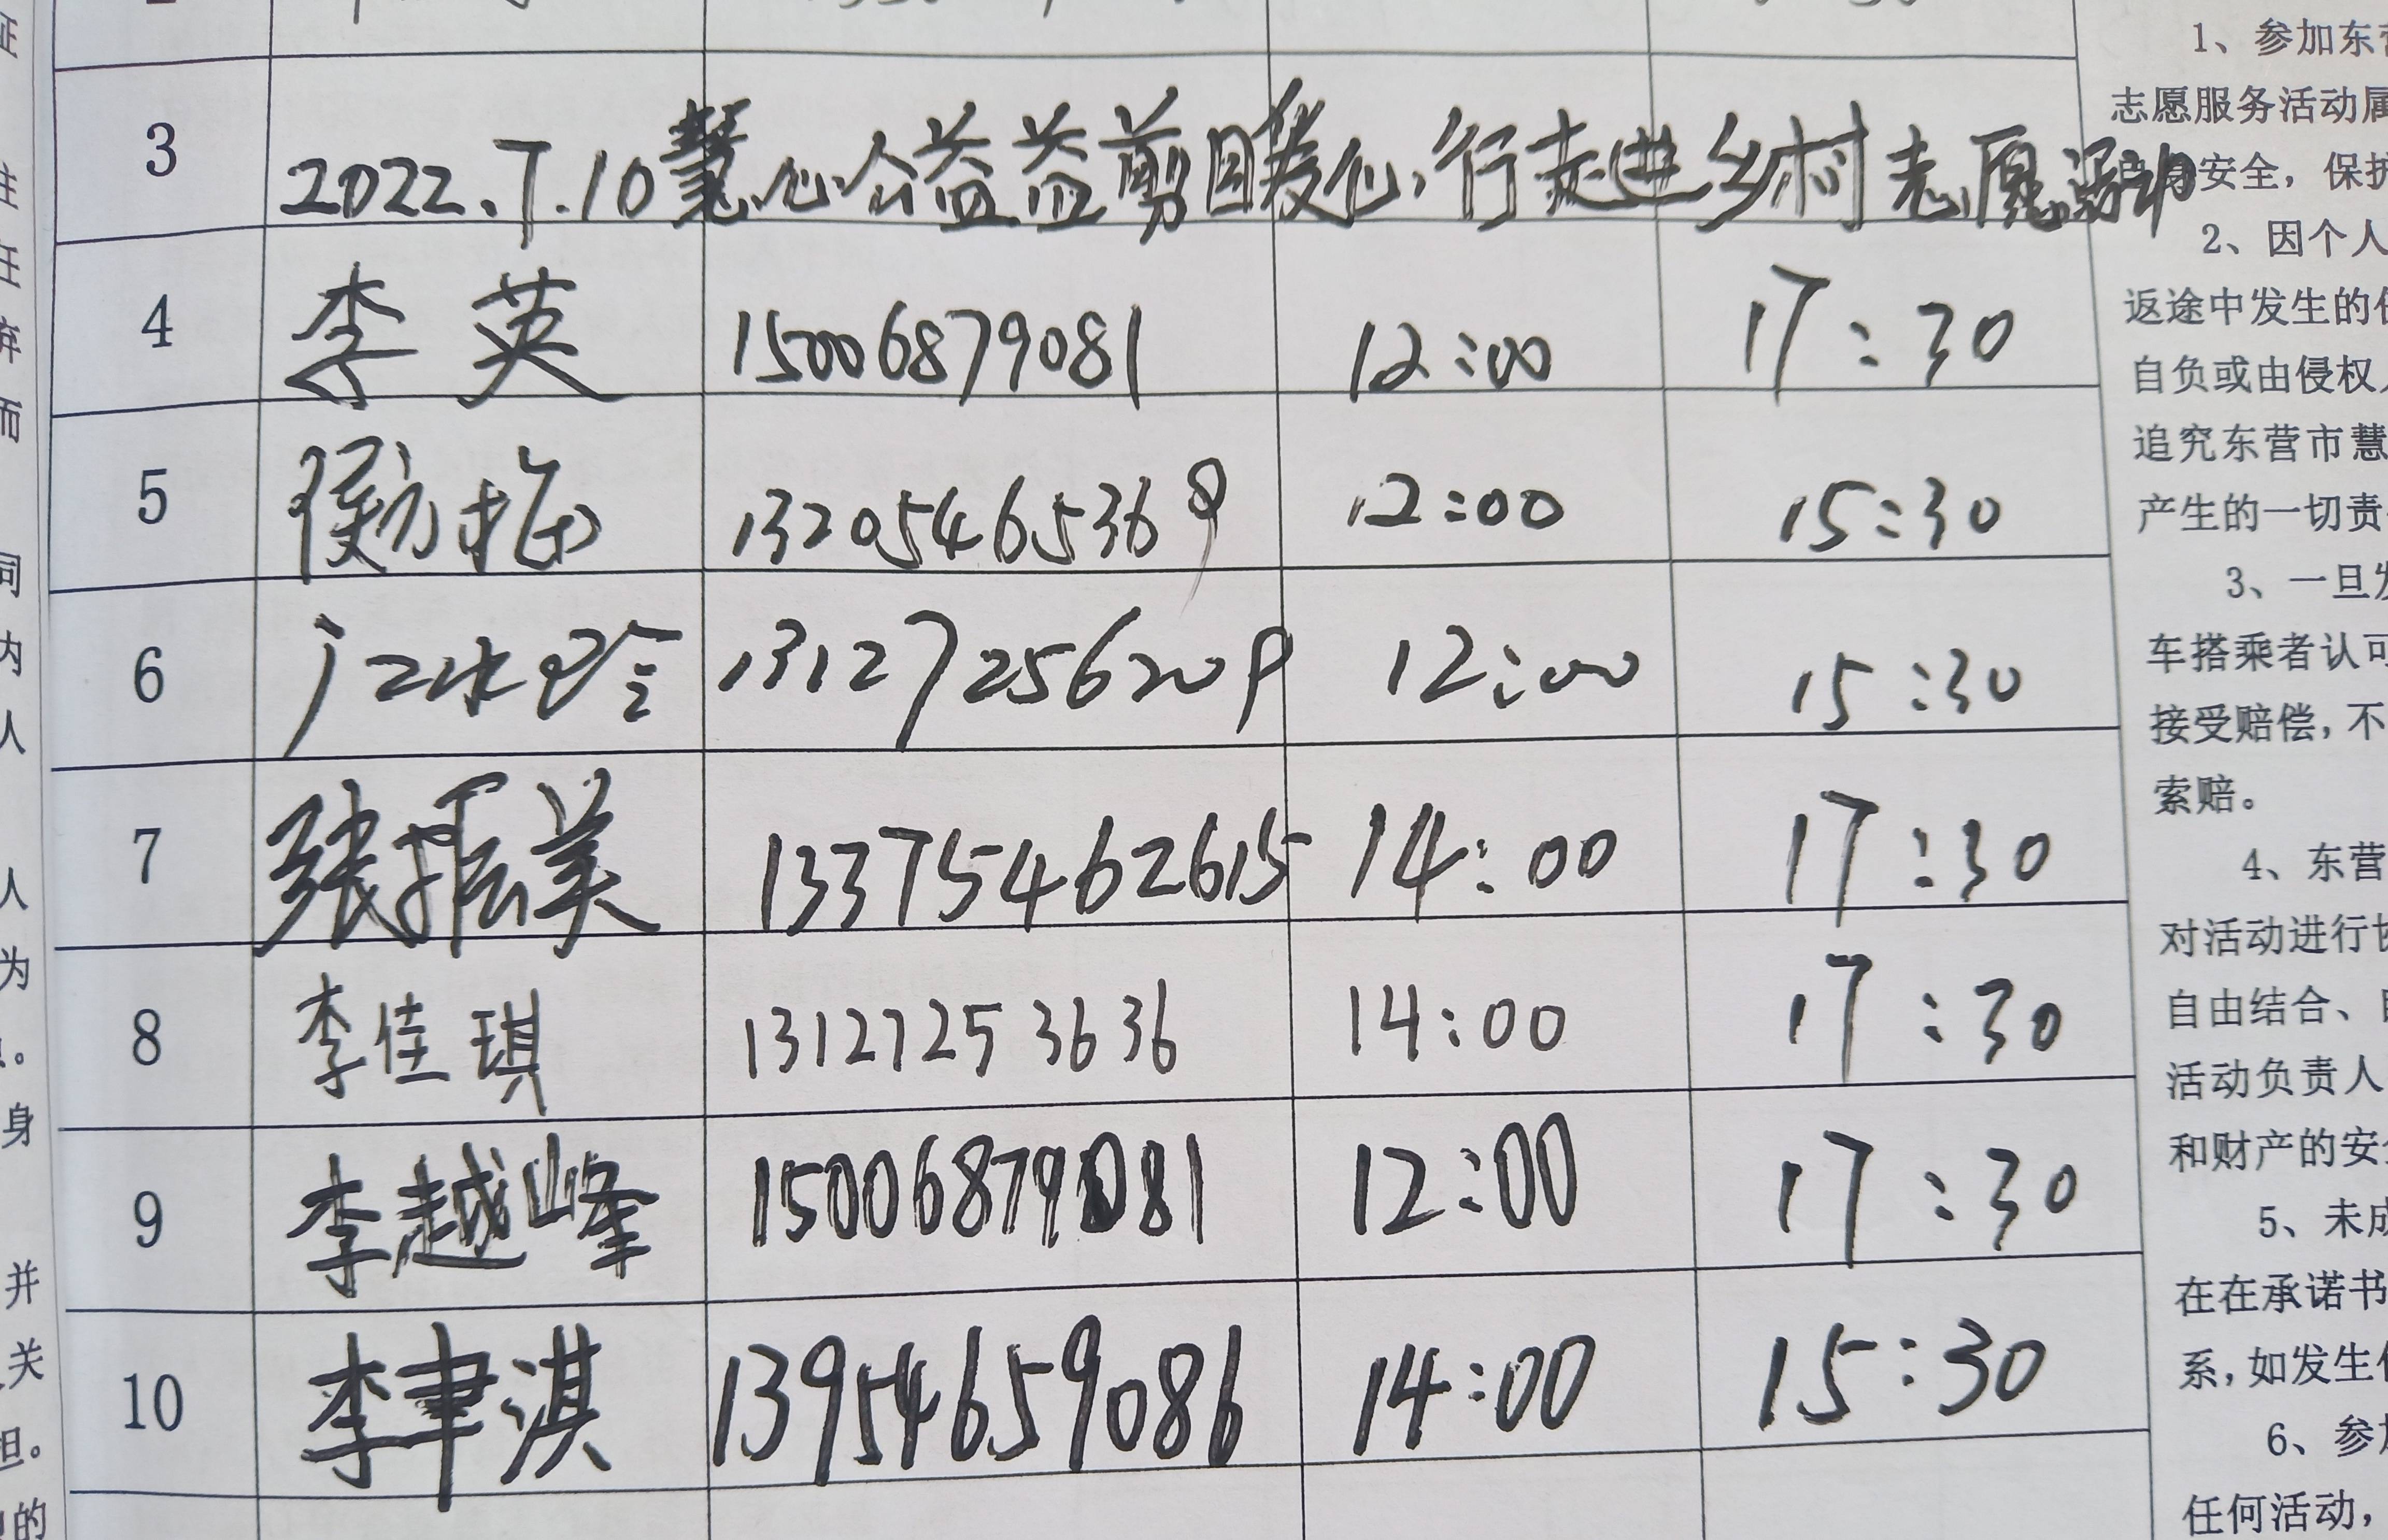 3 2022.7.10慧心公益益剪暖心行走进乡村志愿活动
4 李英 15006879081 12:00 17:30
5 13205465369 12:00 15:30
6 13127256209 12:00 15:30
7 张振美 13375462615 14:00 17:30
8 李佳琪 13127253636 14:00 17:30
9 李越峰 15006879081 12:00 17:30
10 李聿淇 13954659086 14:00 15:30
1、参加东营
志愿服务活动属
自身安全，保护
2、因个人
返途中发生的任
自负或由侵权人
追究东营市慧
产生的一切责
3、一旦发
车搭乘者认可
接受赔偿，不
索赔。
4、东营
对活动进行协
自由结合、自
活动负责人
和财产的安全
5、未成
在在承诺书
系，如发生任
6、参加
任何活动，